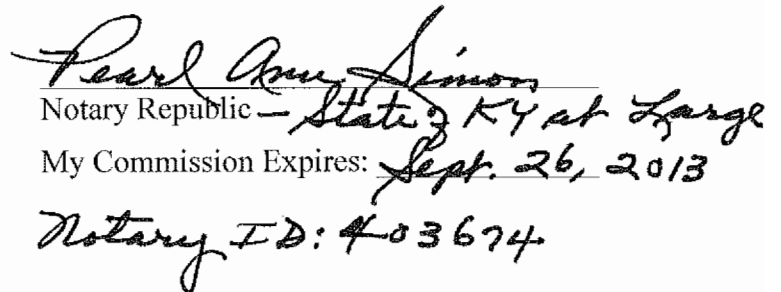 Pearl Ann Simon
Notary Republic – State of KY at Large
My Commission Expires: Sept. 26, 2013
Notary ID: 403674